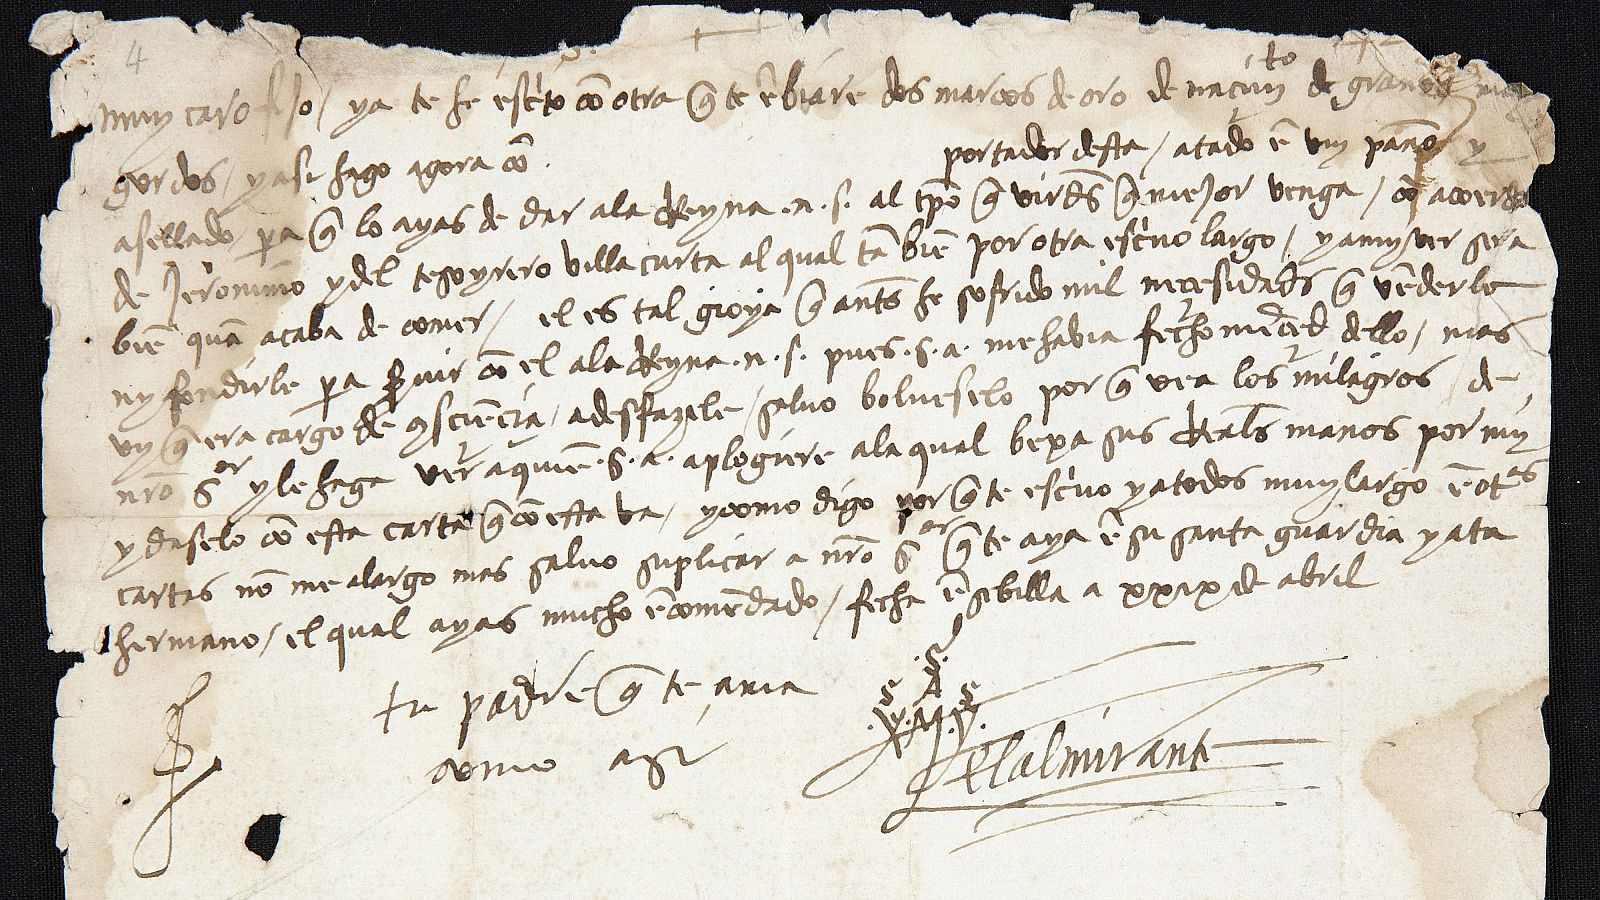 4
muy caro fijo / ya te he escrito con otra que te enbiare dos marcos de oro de nacimyto de granos muy
gordos / y asi hago agora con portador desta / atado en un paño y
asellado para que lo ayas de dar a la Reyna .n. s. al tpo que virds que mejor venga / con acuerdo
de Jeronimo y del tesoyrero villacurta al qual tanbien por otra escrivo largo / y a my ver sera
bien quan acaba de comer / el es tal gioya que ants he sofrido mil necesidads que venderle
ny fondirle pa servir con el a la Reyna .n. s. pues .s. a. me havia fecho merced dello / mas
vy que era cargo de consciencia / a desfazele / salvo bolverselo por que vea los milagros de
nro sor y le haga ver a quien .s. a. aplogiere a la qual bexa sus Reals manos por my
y daselo con esta carta que con esta va / y como digo por que te escrivo y a todos muy largo en otras
cartas non me alargo mas salvo suplicar a nro sor que te aya en su santa guardia y a ta
hermano / el qual ayas mucho encomendado / fecha en sebilla a xxix de abril
tu padre que te ama
como asi
.S.
S A S
.X.M.Y.
el almirante